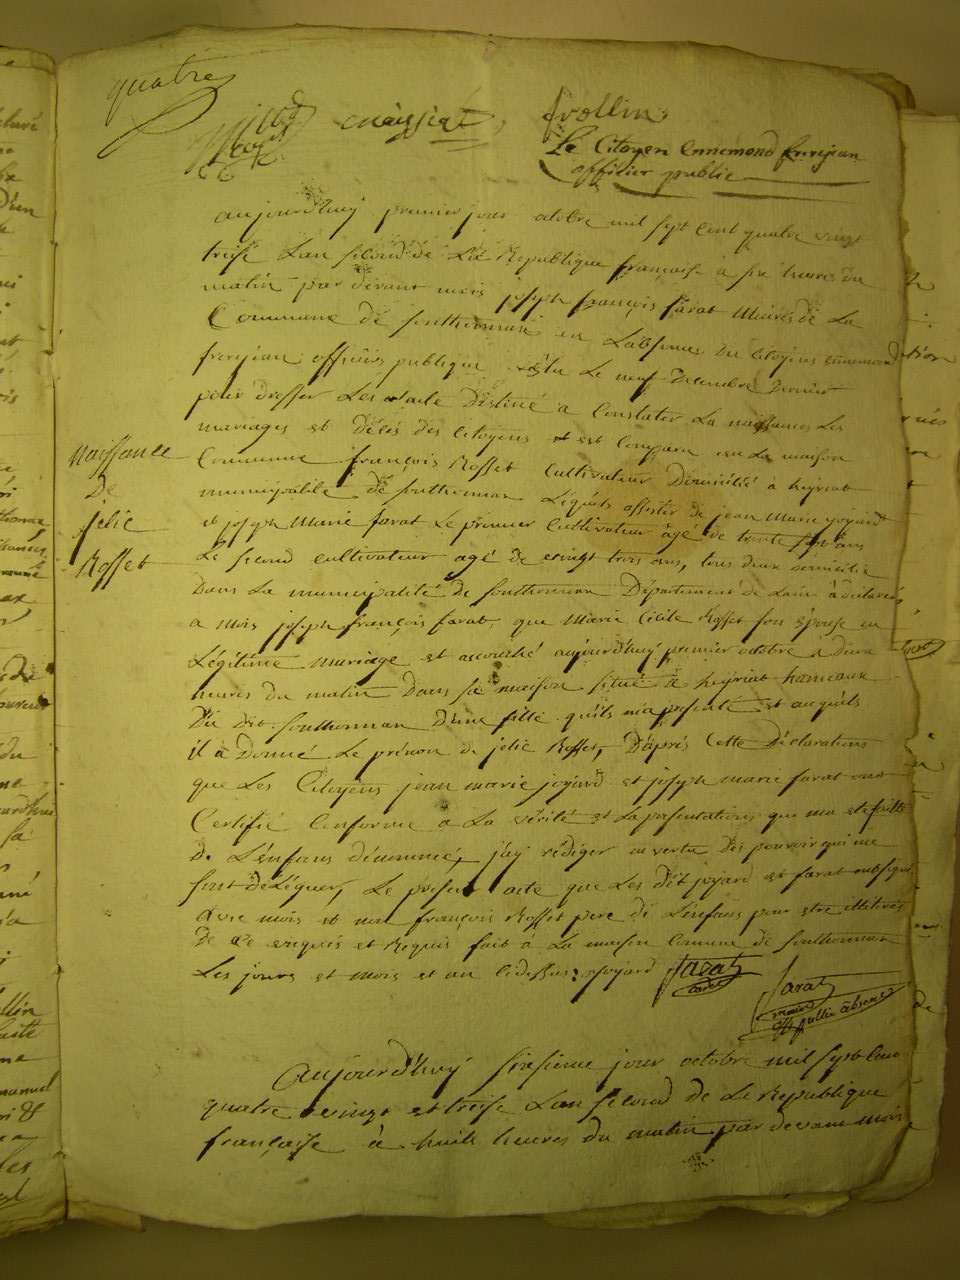 quatre
maissiat frollin
Le Citoyen Ennemond frerejean
officier public
aujourdhuy premier jour octobre mil sept cent quatre vingt
treise Lan second de La Republique française à six heures du
matin par devant mois joseph françois farat Maires de La
Commune de southonnax en Labsence du Citoyens ennemond
frerejean officiés publique eslu Le neuf Decembre Dernier
pour dresser Les acte Destiné a Constater La naissances Les
mariages et décés des Citoyens est Comparu en La maison
Commune françois Rosset Cultivateur Domicilié à heyriat
municipalité de southonnax Lequels assister de jean Marie joyard
et joseph Marie farat Le premier Cultivateur agé de trente sept ans
Le second cultivateur agé de vingt trois ans, tous deux domicilié
Dans La municipalité de southonnax Département de Lain à declarés
a mois joseph françois farat, que Marie Cécile Rosset son Epouse en
Légitime mariage est acouchée aujourdhuy premier octobre a deux
heures du matin Dans sa maison situé à heyriat hameaux
Du dit southonnax D'une fille quils ma presenté et auquels
il à Donné Le prénom de jelie Rosset, D'aprés Cette Déclarations
que Les Citoyens jean marie joyard et joseph marie farat ont
Certifié Conforme a La vérité et La presentations que ma eté faitte
De L'enfans dénommé, j'ay rédiger en vertu des pouvoir qui me
sont deléguer, Le present acte que Les dit joyard et farat ont signé
avec mois et non françois Rosset pere de L'enfans pour etre illitérés
De ce enquis et Requis fait à La maison Comune de southonnax
Les jours et mois et an cidessus joyard farat
farat
maire
off public absent
naissance
De
jelie
Rosset
Aujourd'huy sixsieme jour octobre mil sept Cent
quatre vingt et treise Lan second de La Republique
française à huit heures du matin par devant mois